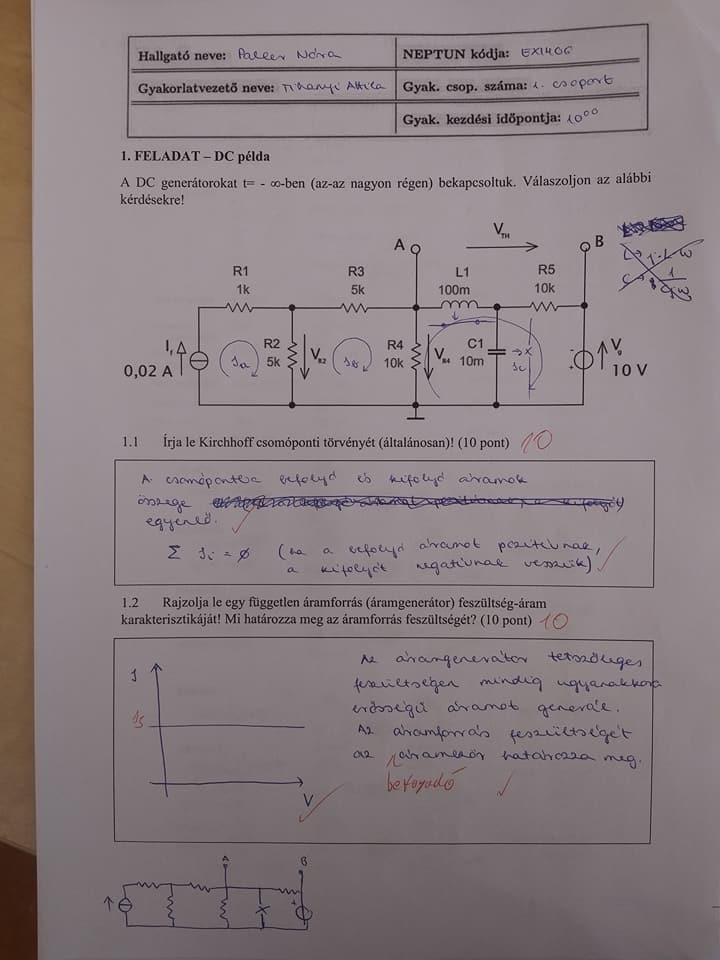 Hallgató neve: Paller Nóra
NEPTUN kódja: EX140G
Gyakorlatvezető neve: Tihanyi Attila
Gyak. csop. száma: 1. csoport
Gyak. kezdési időpontja: 10⁰⁰
1. FELADAT – DC példa
A DC generátorokat t= - ∞-ben (az-az nagyon régen) bekapcsoltuk. Válaszoljon az alábbi
kérdésekre!
A
V_TH
B
R1
1k
R3
5k
L1
100m
R5
10k
I_f
0,02 A
J_a
R2
5k
V_R2
J_b
R4
10k
V_R4
C1
10m
J_c
-
+
V_g
10 V
1.1 Írja le Kirchhoff csomóponti törvényét (általánosan)! (10 pont) 10
A csomópontba befolyó és kifolyó áramok
összege
egyenlő.
Σ J_i = 0 (ha a befolyó áramot pozitívnak,
a kifolyót negatívnak vesszük)
1.2 Rajzolja le egy független áramforrás (áramgenerátor) feszültség-áram
karakterisztikáját! Mi határozza meg az áramforrás feszültségét? (10 pont) 10
J
Js
V
Az áramgenerátor tetszőleges
feszültségen mindig ugyanakkora
erősségű áramot generál.
Az áramforrás feszültségét
az áramkör határozza meg.
befogadó
A
B
+